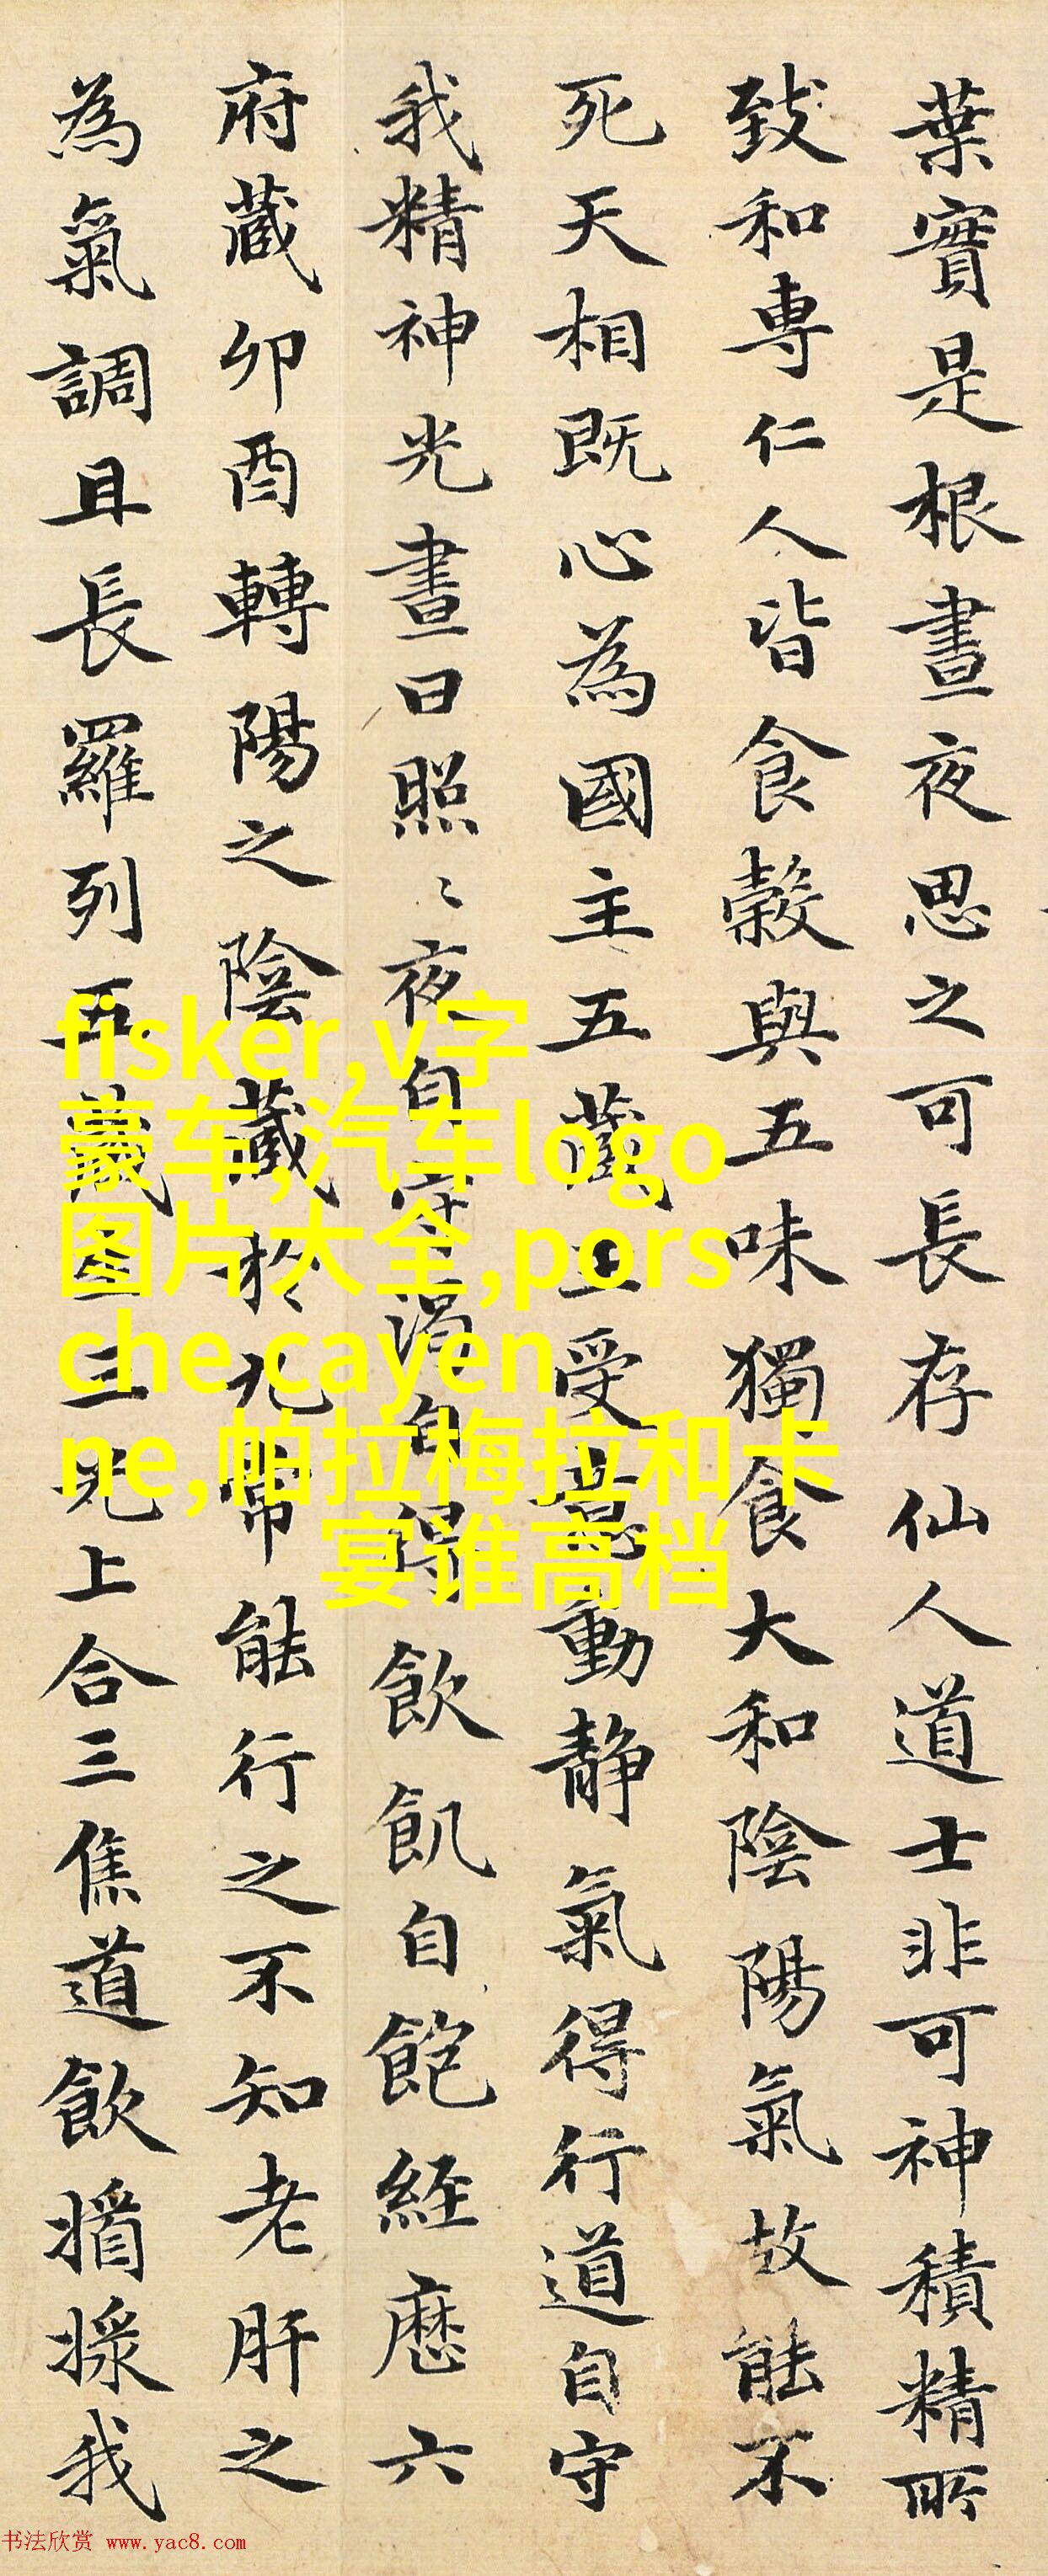 葉實是根晝夜思之可長存仙人道士非可神積精所
致和専仁人皆食穀與五味獨食大和陰陽氣故能不
死天相既心為國主五藏王受意動静氣得行道自守
我精神光晝日照〻夜自守渴自得飲飢自飽經歷六
府藏卯酉轉陽之陰藏於九常能行之不知老肝之
為氣調且長羅列五藏三光上合三焦道飲搯㨿我
fisker,v字
豪车,汽车logo
图片大全,pors
che cayen
ne,帕拉梅拉和卡
宴谁高档
书法欣赏 www.yac8.com